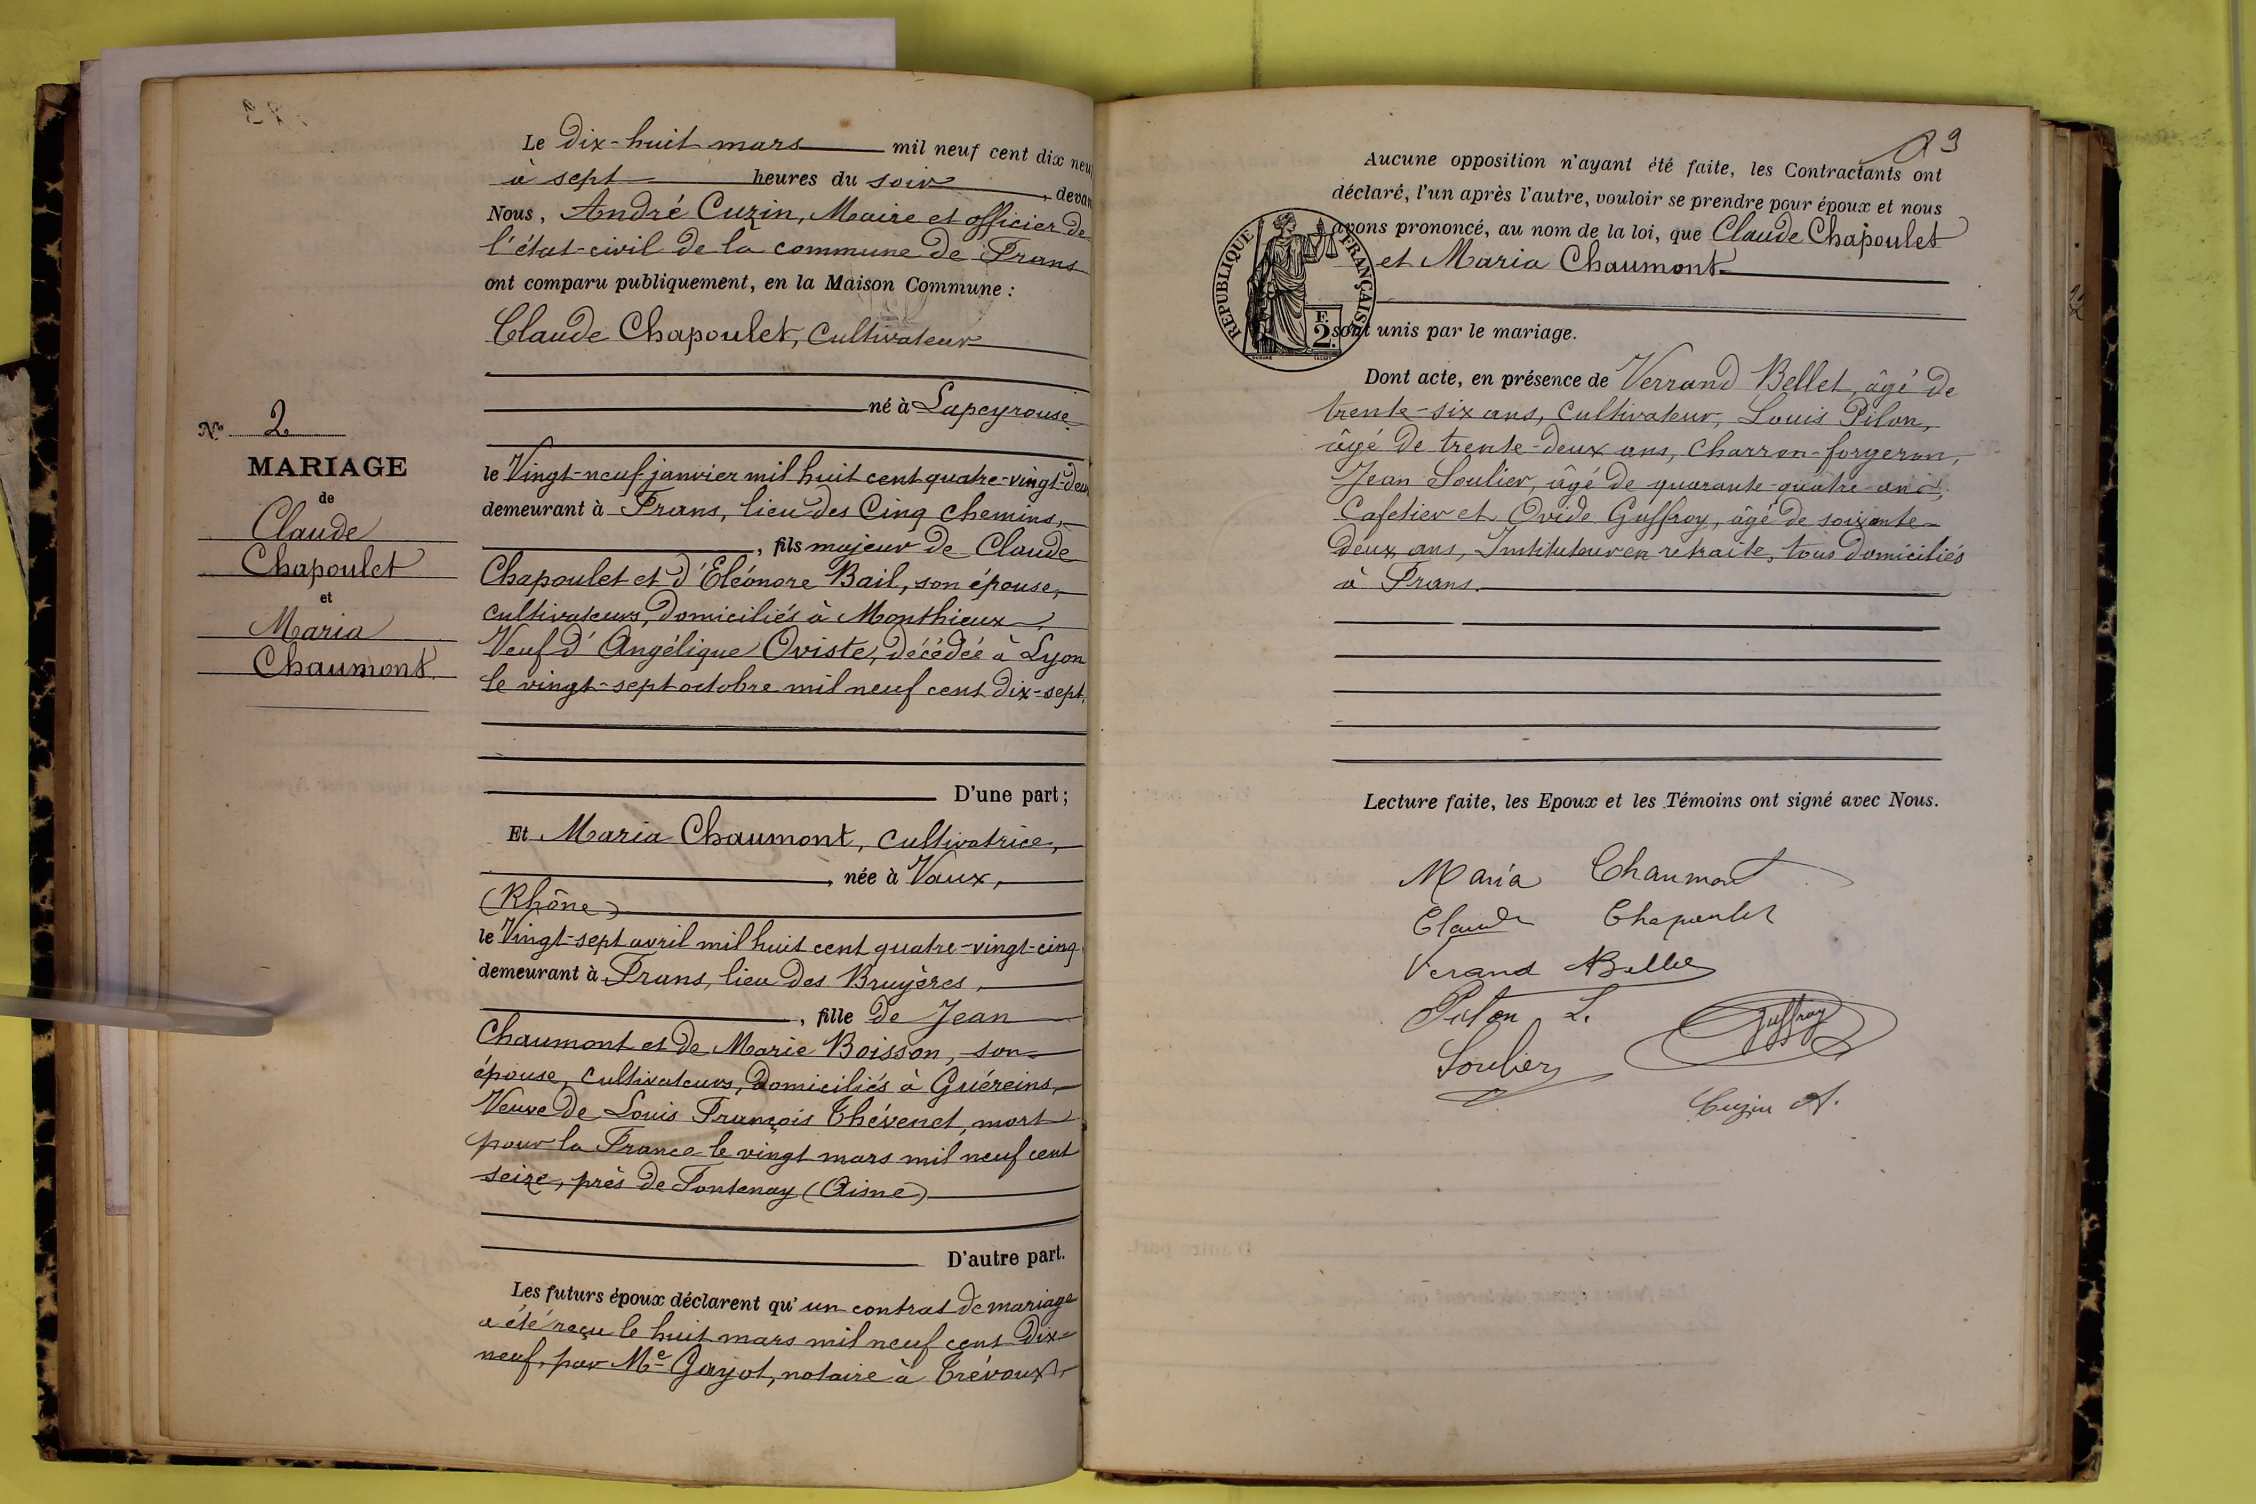 Le dix-huit mars mil neuf cent dix neu
à sept heures du soir, devan
Nous, André Cuzin, Maire et officier de
l'état-civil de la commune de Frans
ont comparu publiquement, en la Maison Commune :
Claude Chapoulet, cultivateur
né à Lapeyrouse
N° 2
MARIAGE
de
Claude
Chapoulet
et
Maria
Chaumont
le Vingt-neuf janvier mil huit cent quatre-vingt-deux
demeurant à Frans, lieu des Cinq chemins,
, fils majeur de Claude
Chapoulet et d'Eléonore Bail, son épouse,
cultivateurs, domiciliés à Monthieux,
Veuf d'Angélique Oviste, décédée à Lyon
le vingt-sept octobre mil neuf cent dix-sept,
D'une part ;
Et Maria Chaumont, cultivatrice,
, née à Vaux,
(Rhône)
le Vingt-sept avril mil huit cent quatre-vingt-cinq
demeurant à Frans, lieu des Bruyères,
, fille de Jean
Chaumont et de Marie Boisson, son
épouse, cultivateurs, domiciliés à Guéreins,
Veuve de Louis François Thévenet, mort
pour la France le vingt mars mil neuf cent
seize, près de Fontenoy (Aisne)
D'autre part.
Les futurs époux déclarent qu'un contrat de mariage
a été reçu le huit mars mil neuf cent dix-
neuf, par Me Gayot, notaire à Trévoux,
Aucune opposition n'ayant été faite, les Contractants ont
déclaré, l'un après l'autre, vouloir se prendre pour époux et nous
avons prononcé, au nom de la loi, que Claude Chapoulet
et Maria Chaumont
RÉPUBLIQUE FRANÇAISE
F.
2.
sont unis par le mariage.
Dont acte, en présence de Verrand Bellet, âgé de
trente-six ans, cultivateur, Louis Pilon,
âgé de trente-deux ans, charron-forgeron,
Jean Soulier, âgé de quarante-quatre ans,
Cafetier et Ovide Guffroy, âgé de soixante-
deux ans, Instituteur en retraite, tous domiciliés
à Frans.
Lecture faite, les Epoux et les Témoins ont signé avec Nous.
Maria Chaumont
Claude Chapoulet
Verand Bellet
Pilon L.
Guffroy
Soulier
Cuzin A.